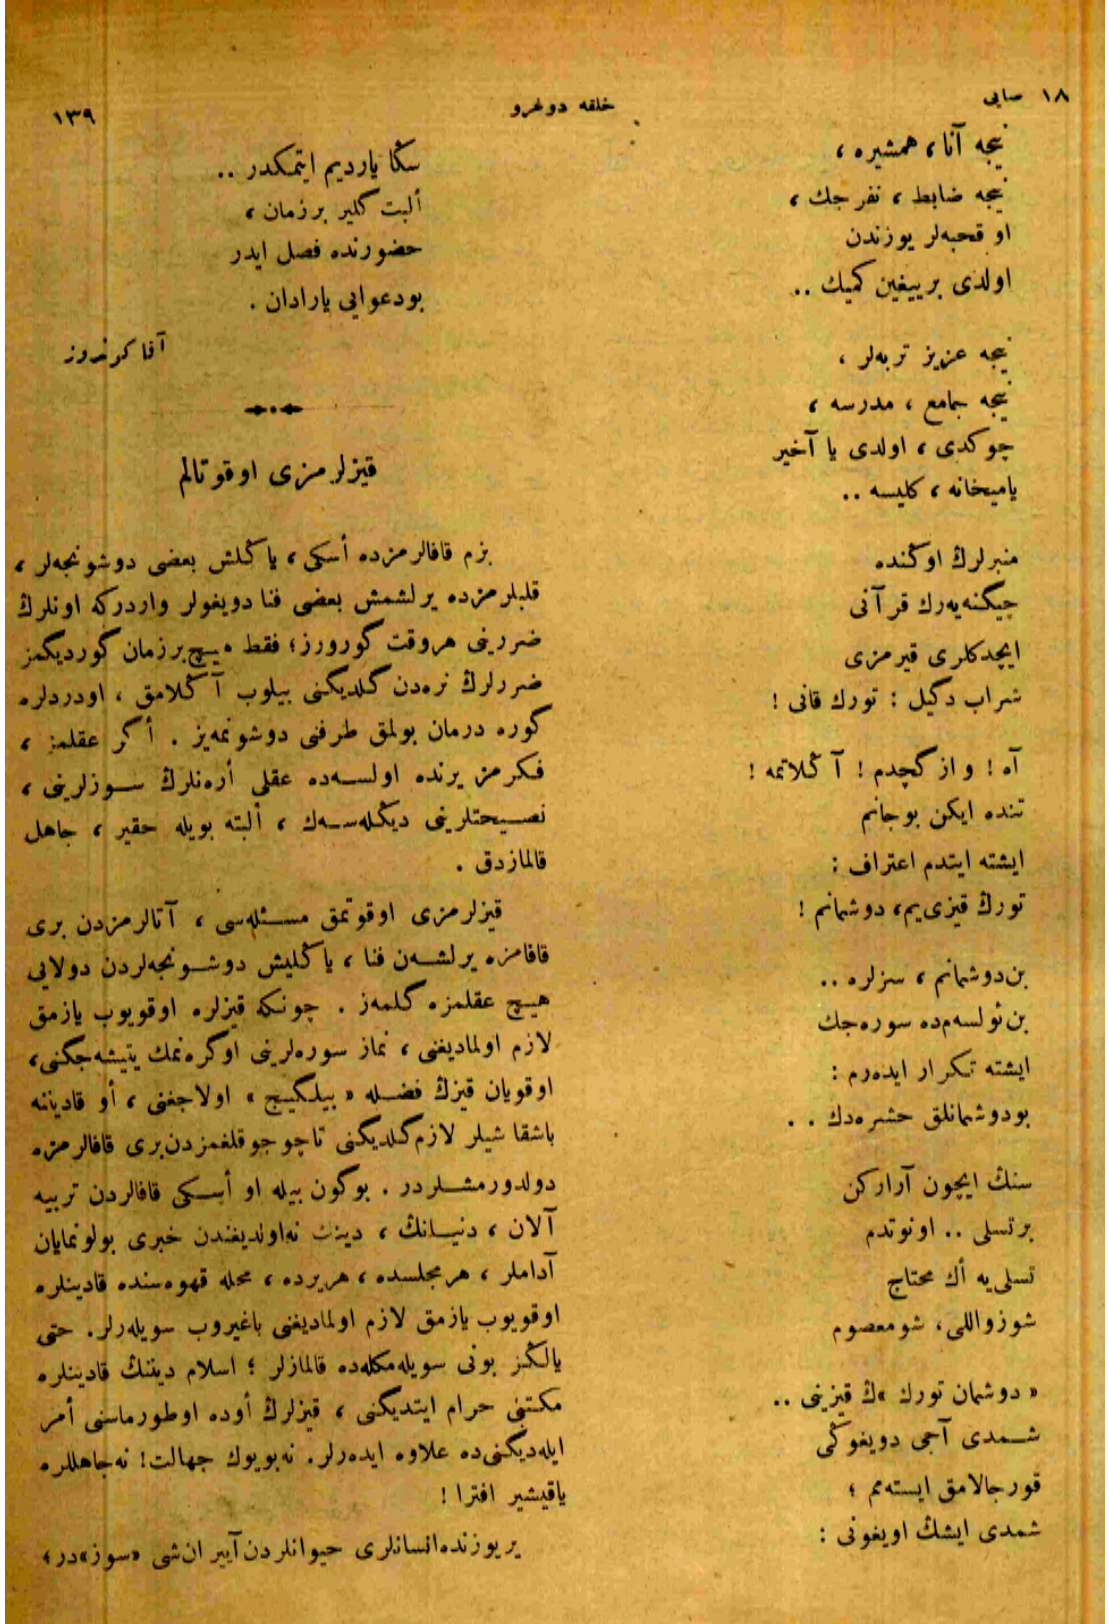 ١٨ صایی
خلقه دوغرو
١٣٩
نیجه آنا، همشیره ،
نیجه ضابط ، نفرجك ،
او قحبه‌لر یوزندن
اولدی بر ییغین كمیك ..
نیجه عزیز تربه‌لر ،
نیجه جامع ، مدرسه ،
چوكدی ، اولدی یا آخیر
یامیخانه ، كلیسه ..
منبرلرڭ اوڭنده
چیگنه‌یه‌رك قرآنی
ایچدكلری قیرمزی
شراب دگیل : تورك قانی !
آه ! وازگچدم ! آڭلاتمه !
تنده ایكن بوجانم
ایشته ایتدم اعتراف :
تورك قیزی‌یم، دوشمانم !
بن‌دوشمانم ، سزلره ..
بن‌ئولسه‌م‌ده سوره‌جك
ایشته تكرار ایده‌رم :
بودوشمانلق حشره‌دك . .
سنڭ ایچون آراركن
برتسلی .. اونوتدم
تسلی‌یه أك محتاج
شوزواللی، شومعصوم
« دوشمان تورك »ڭ قیزینی ..
شمدی آجی دویغوڭی
قورجالامق ایسته‌مم ؛
شمدی ایشڭ اویغونی :
سڭا یاردیم ایتمكدر ..
ألبت گلیر برزمان ،
حضورنده فصل ایدر
بودعوایی یارادان .
آقا گوندوز
قیزلرمزی اوقوتالم
بزم قافالرمزده أسكی ، یاڭلش بعضی دوشونجه‌لر ،
قلبلرمزده یرلشمش بعضی فنا دویغولر واردركه اونلرڭ
ضررینی هروقت گورورز؛ فقط هیچ‌برزمان گوردیگمز
ضررلرڭ نره‌دن گلدیگنی بیلوب آڭلامق ، اودردلره
گوره درمان بولمق طرفنی دوشونمه‌یز . أگر عقلمز ،
فكرمز یرنده اولسه‌ده عقلی أره‌نلرڭ سوزلرینی ،
نصیحتلرینی دیڭله‌سه‌ك ، ألبته بویله حقیر ، جاهل
قالمازدق .
قیزلرمزی اوقوتمق مسئله‌سی ، آتالرمزدن بری
قافامزه یرلشه‌ن فنا ، یاڭلیش دوشونجه‌لردن دولایی
هیچ عقلمزه گلمه‌ز . چونكه قیزلره اوقویوب یازمق
لازم اولمادیغنی ، نماز سوره‌لرینی اوگره‌نمك یتیشه‌جگنی،
اوقویان قیزڭ فضله « بیلگیج » اولاجغنی ، أو قادیننه
باشقا شیلر لازم گلدیگنی تاچوجوقلغمزدن‌بری قافالرمزه
دولدورمشلردر . بوگون بیله او أسكی قافالردن تربیه
آلان ، دنیانڭ ، دینڭ نه‌اولدیغندن خبری بولونمایان
آداملر ، هرمجلسده ، هریرده ، محله قهوه‌سنده قادینلره
اوقویوب یازمق لازم اولمادیغنی باغیروب سویله‌رلر. حتی
یالڭز بونی سویله‌مكله‌ده قالمازلر ؛ اسلام دیننڭ قادینلره
مكتبی حرام ایتدیگنی ، قیزلرڭ أوده اوطورماسنی أمر
ایله‌دیگنی‌ده علاوه ایده‌رلر. نه‌بویوك جهالت! نه‌جاهللره
یاقیشیر افترا !
یریوزنده‌انسانلری حیوانلردن آییران‌شی «سوز»در؛